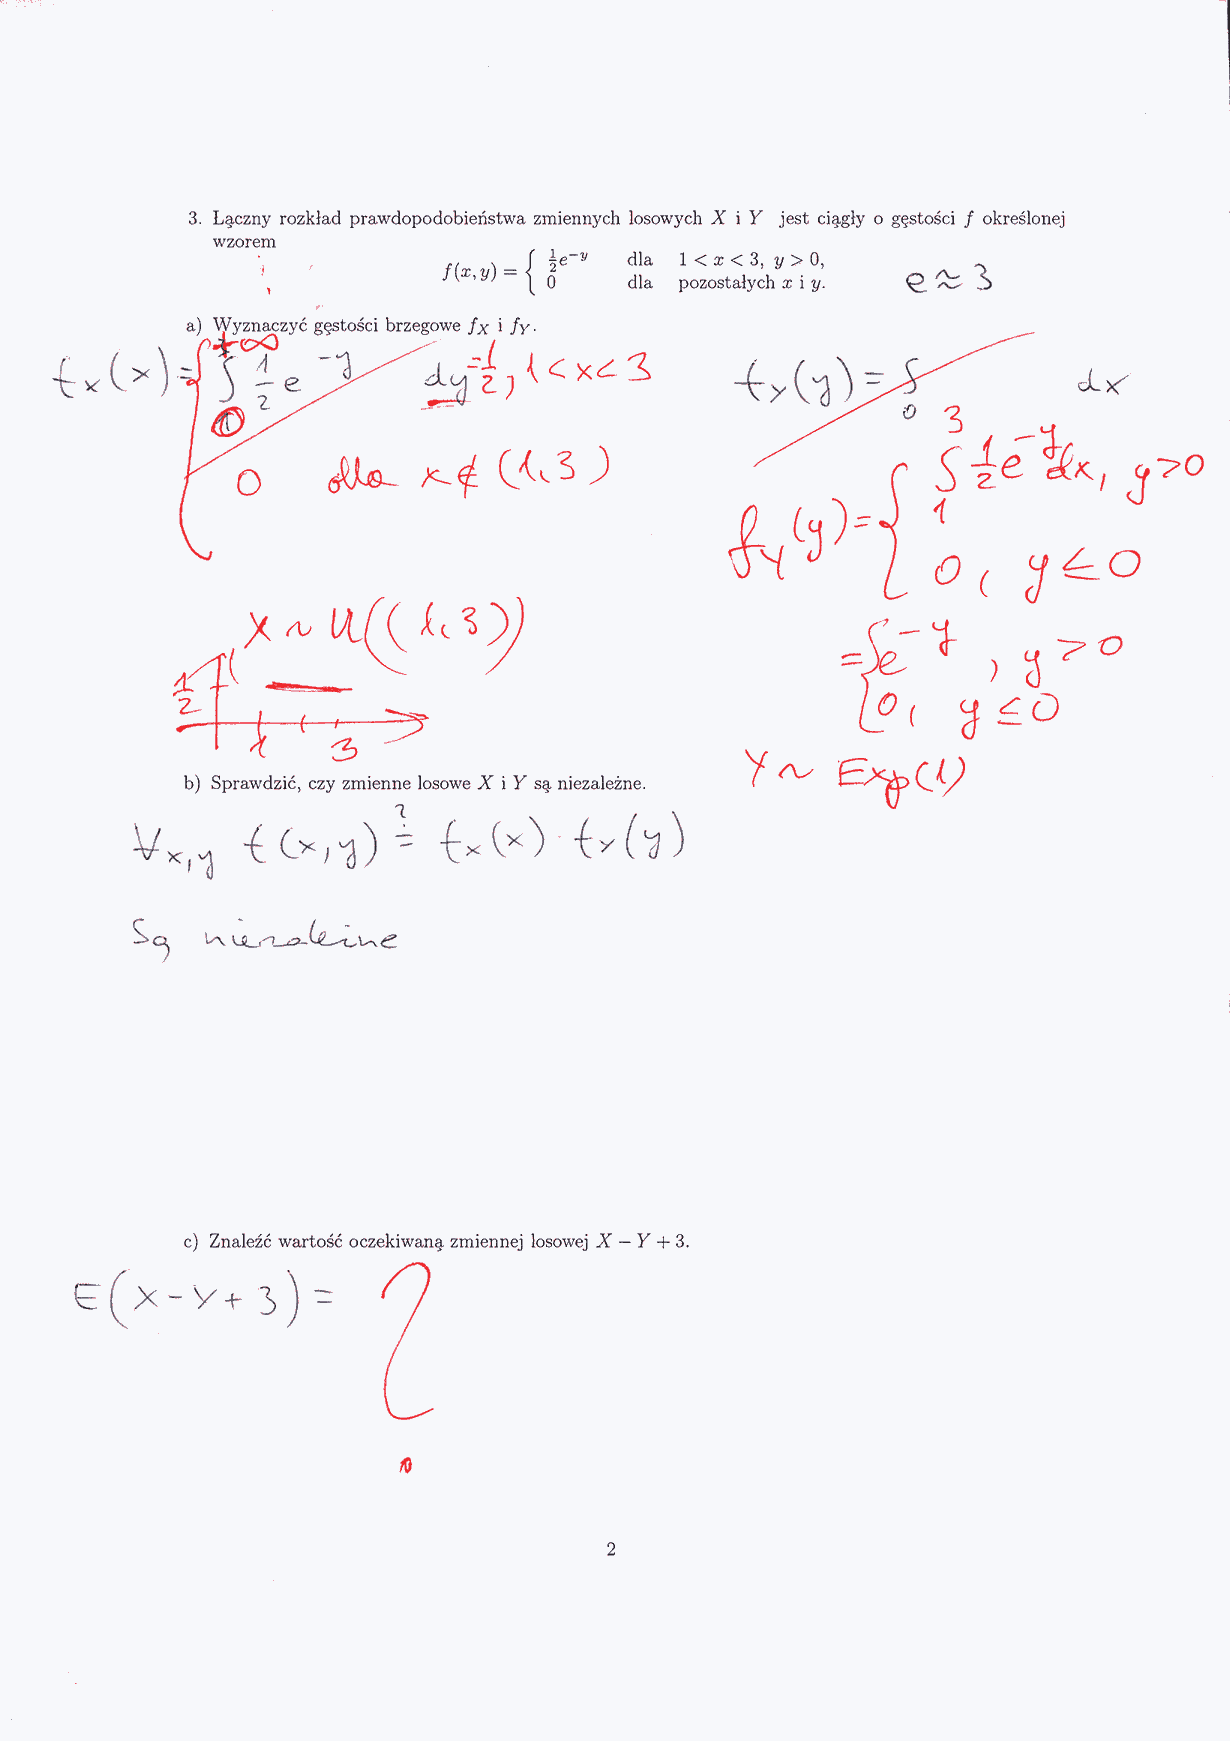 3. Łączny rozkład prawdopodobieństwa zmiennych losowych X i Y jest ciągły o gęstości f określonej
wzorem
f(x, y) = { ½e^{-y} dla 1 < x < 3, y > 0,
0 dla pozostałych x i y.
e ≈ 3
a) Wyznaczyć gęstości brzegowe f_X i f_Y.
f_X(x) = { ∫_0^{+∞} ½ e^{-y} dy = ½, 1 < x < 3
0 dla x ∉ (1, 3)
f_Y(y) = ∫_0 dx
f_Y(y) = { ∫_1^3 ½ e^{-y} dx, y > 0
0, y ≤ 0
= { e^{-y}, y > 0
0, y ≤ 0
X ~ U((1, 3))
½
1 3
Y ~ Exp(1)
b) Sprawdzić, czy zmienne losowe X i Y są niezależne.
∀_{x,y} f(x, y) ?= f_X(x) · f_Y(y)
Są niezależne
c) Znaleźć wartość oczekiwaną zmiennej losowej X − Y + 3.
E(X - Y + 3) = ?
2